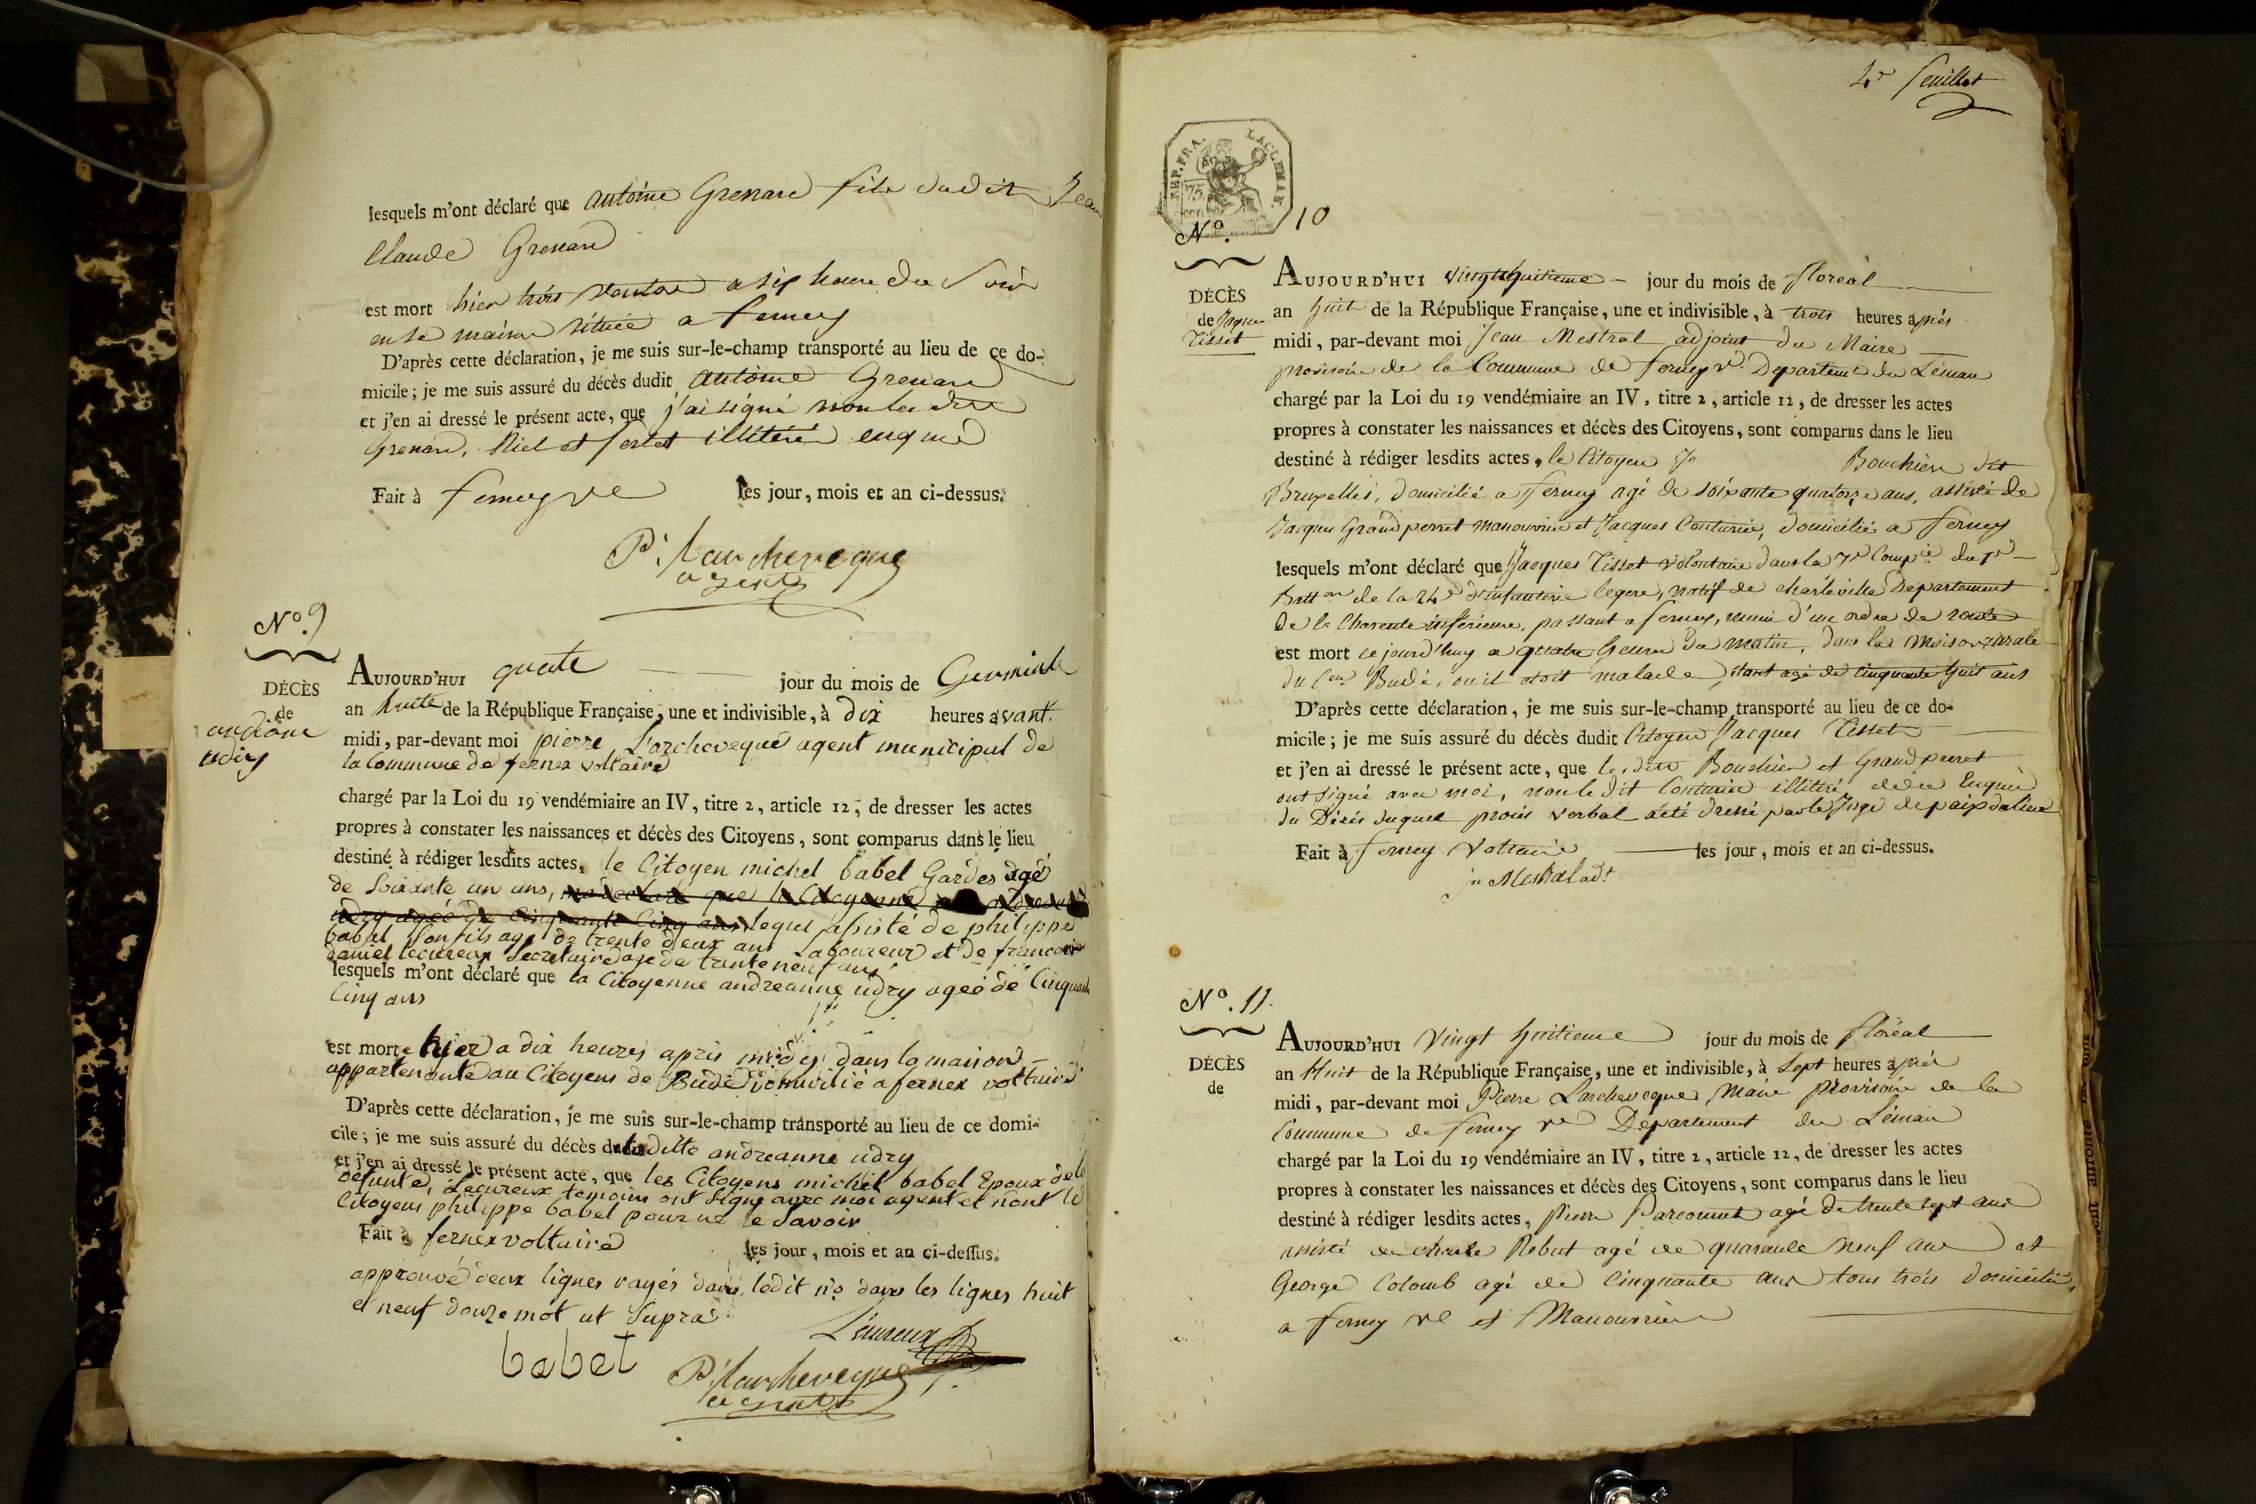 lesquels m'ont déclaré que antoine Grenard fils dudit Jean
Claude Grenard
est mort hier trois ventose a six heures du Soir
en sa maison située a ferney
D'après cette déclaration, je me suis sur-le-champ transporté au lieu de ce do-
micile; je me suis assuré du décès dudit antoine Grenard
et j'en ai dressé le présent acte, que j'ai signé non les dits
Grenard, Niel et fertet illitérés enquis
Fait à ferney vre les jour, mois et an ci-dessus.
P. Larcheveque
agent
No. 9
DÉCÈS
de
andriane
udry
AUJOURD'HUI quatre jour du mois de Germinale
an huite de la République Française, une et indivisible, à dix heures avant.
midi, par-devant moi pierre Larcheveque agent municipal de
la Commune de fernex voltaire
chargé par la Loi du 19 vendémiaire an IV, titre 2, article 12, de dresser les actes
propres à constater les naissances et décès des Citoyens, sont comparus dans le lieu
destiné à rédiger lesdits actes, le Citoyen michel babel Gardes agé
de Soixante un ans, ma declaré que la Citoyenne
udry ageé de cinquante Cinq ans lequel assisté de philippe
babel Son fils age de trente deux ans Laboureur et de francois
daniel lecureux Secretaire age de trante neuf ans
lesquels m'ont déclaré que la Citoyenne andreanne udry ageé de Cinquante
Cinq ans
est morte hier a dix heures apris midy dans la maison
appartenante au Citoyens de Budé domicilié a fernex voltaire
D'après cette déclaration, je me suis sur-le-champ transporté au lieu de ce domi-
cile; je me suis assuré du décès de laditte andreanne udry
et j'en ai dressé le présent acte, que les Citoyens michel babel Epoux de la
défunte, Lecureux temoins ont Signe avec moi agent et nont le
Citoyens philippe babel pour ne le Savoir
Fait à fernex voltaire les jour, mois et an ci-dessus.
approuvé deux lignes rayés dans ledit no dans les lignes huit
et neuf douze mot ut Supra
Lécureux
babel
P. Larcheveque
agent
4e feuillet
REP. FRA.
75
LAC LEMAN.
No. 10
DÉCÈS
de Jaques
Tisset
AUJOURD'HUI vingt huitieme jour du mois de floréal
an huit de la République Française, une et indivisible, à trois heures après
midi, par-devant moi Jean Mestral adjoint du Maire
provisoire de la Commune de ferney ve. Departemt du Léman
chargé par la Loi du 19 vendémiaire an IV, titre 2, article 12, de dresser les actes
propres à constater les naissances et décès des Citoyens, sont comparus dans le lieu
destiné à rédiger lesdits actes, le Citoyen Bouchien dit
Bruxelles, domicilié a ferney agé de soixante quatorze ans, assisté de
Jacques Grandperret manouvrier et Jacques Couturier, domicilié a ferney
lesquels m'ont déclaré que Jacques Tisset volontaire dans la 7e Compie du 1er
Batton de la 24e d'infanterie legere, natif de charleville Departement
de la Charente inférieure, passant a ferney, muni d'un ordre de route
est mort ce jourd'huy a quatre heures du matin, dans la maison rurale
du Cen Budé, ou il etoit malade, étant agé de cinquante huit ans
D'après cette déclaration, je me suis sur-le-champ transporté au lieu de ce do-
micile; je me suis assuré du décès dudit Citoyen Jacques Tisset
et j'en ai dressé le présent acte, que les dits Bouchien et Grandperret
ont signé avec moi, non le dit Couturier illitéré de ce Enquis
du Décès duquel procès verbal a été dressé par le Juge de paix du lieu
Fait à ferney Voltaire les jour, mois et an ci-dessus.
jn Mestral adt
No. 11.
DÉCÈS
de
AUJOURD'HUI Vingt huitieme jour du mois de floréal
an Huit de la République Française, une et indivisible, à Sept heures après
midi, par-devant moi Pierre Larcheveque Maire provisoire de la
Commune de ferney ve Département du Léman
chargé par la Loi du 19 vendémiaire an IV, titre 2, article 12, de dresser les actes
propres à constater les naissances et décès des Citoyens, sont comparus dans le lieu
destiné à rédiger lesdits actes, Pierre Parcorent agé de trente sept ans
assisté de charle Rebut agé de quarante neuf ans et
George Colomb agé de Cinquante ans tous trois domiciliés
a ferney ve et Manouvriers